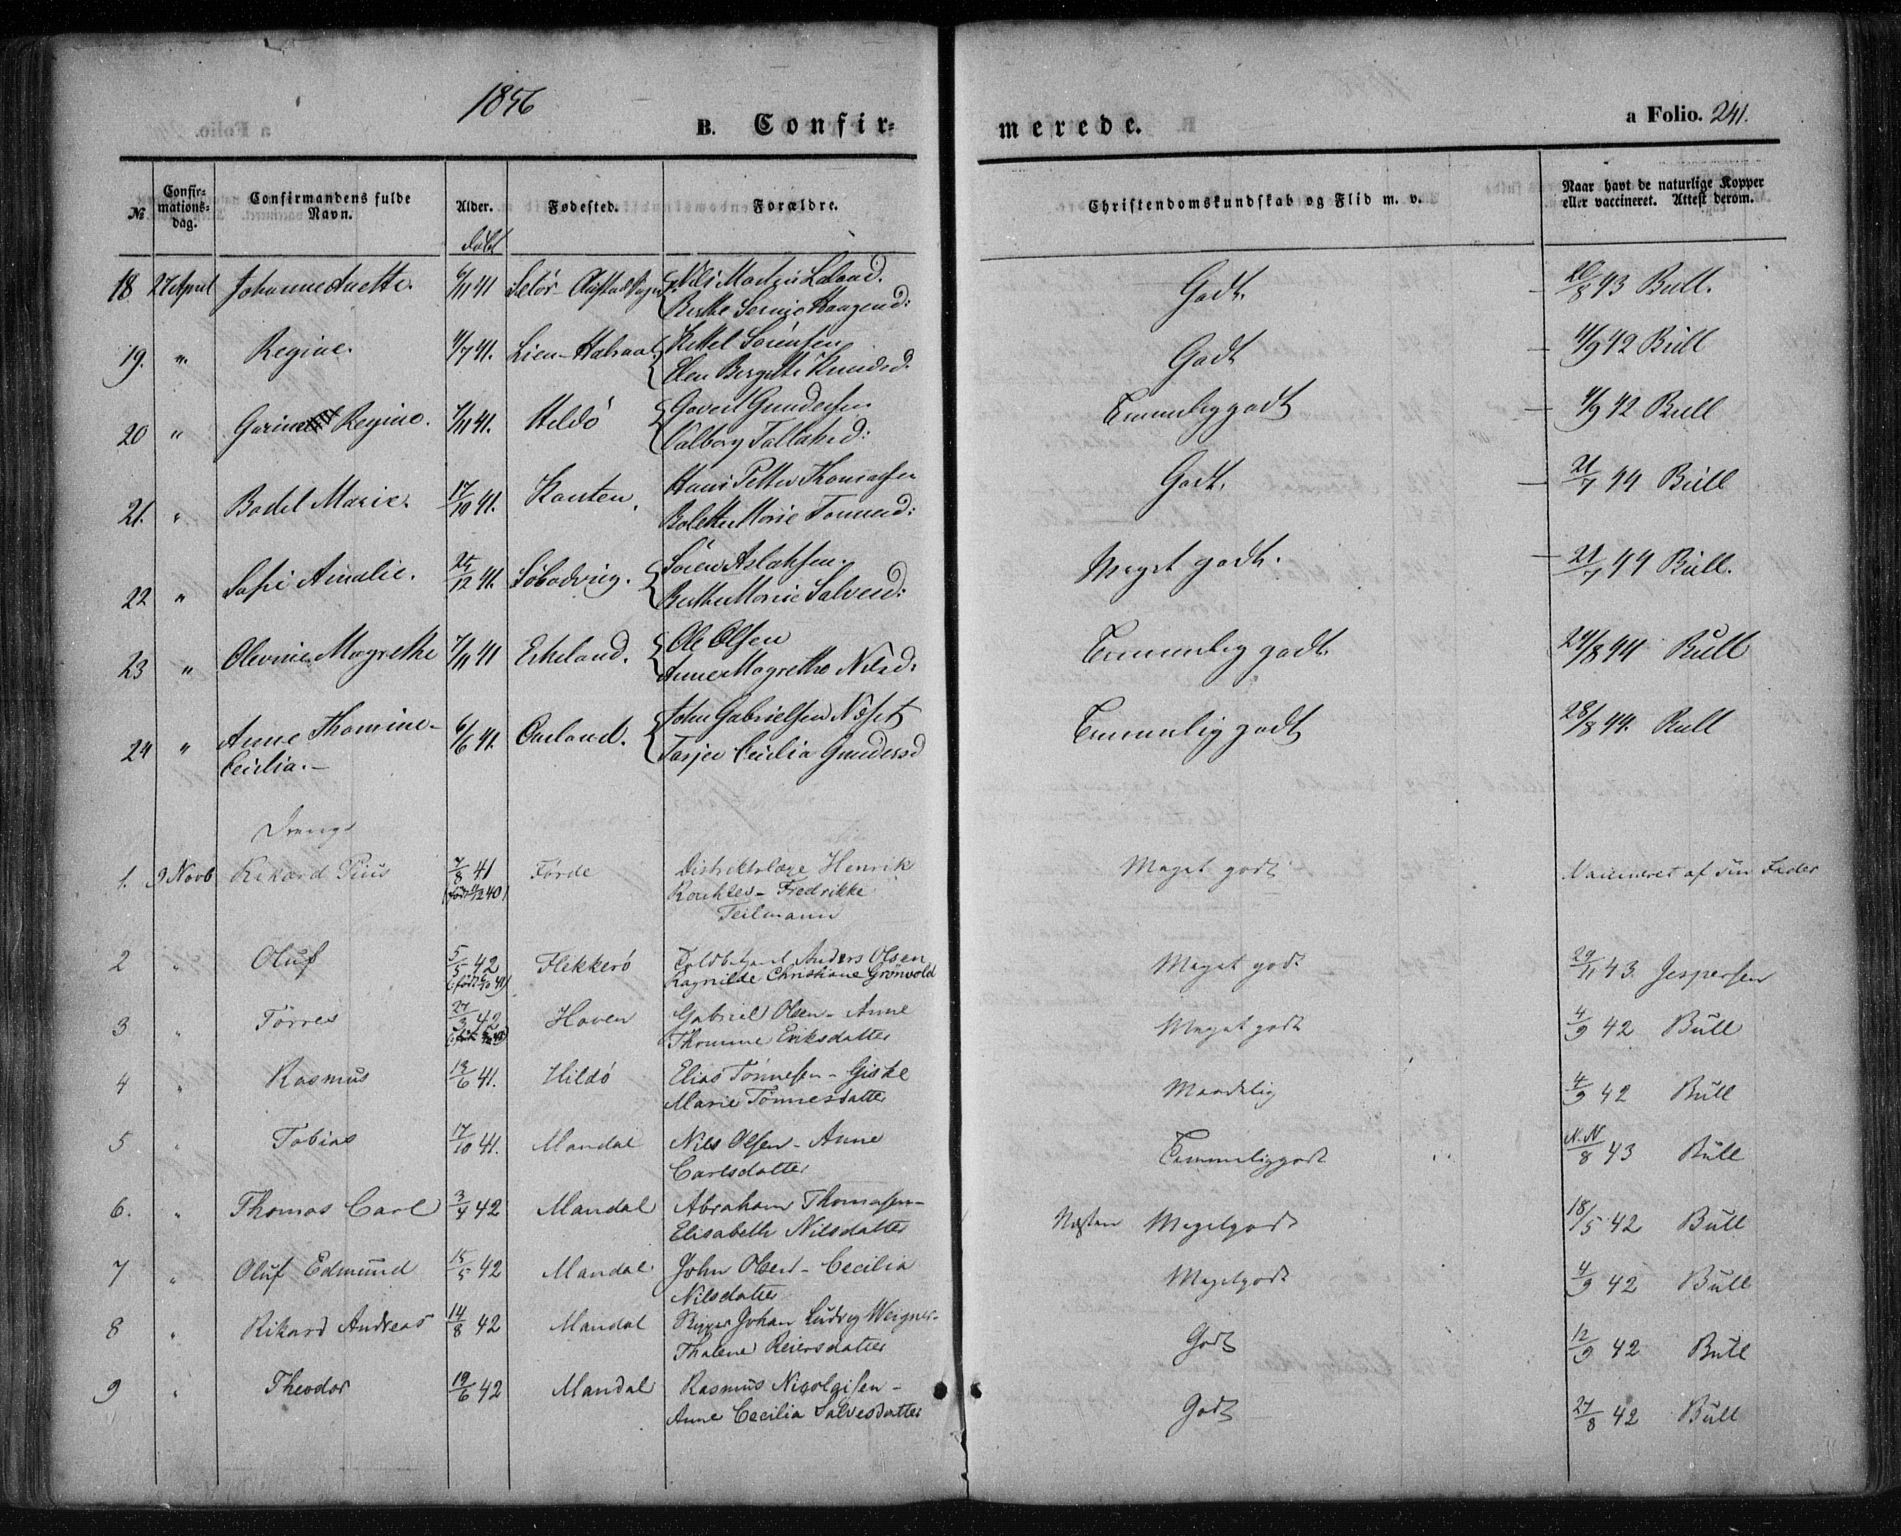 1856
B. Confirmerede.
a Folio. 241.
№ Confirmationsdag. Confirmandens fulde Navn. Alder. Fødested. Forældre. Christendomskundskab og Flid m. v. Naar havt de naturlige Kopper eller vaccineret. Attest derom.
døbt
18 27 April Johanne Anette. 6/11 41 Nils Godt. 20/8 43 Bull.
Berthe
19. " Regine. 11/7 41. Kittel Sørensen Godt 4/9 42 Bull
Bergitte Knudsd:
20 " Regine. 7/11 41. Hildö Gundersen Temmeliggodt 4/9 42 Bull
Valborg Tallaksd:
21. " Bodel Marie. 17/10 41. Hans Petter Thomassen Godt. 21/7 44 Bull
Marie
22 " Sofie Amalie. 12 41. Søren Aslaksen Meget godt. 21/7 44 Bull.
Berthe Marie Salvesd:
23 " Olevine Magrethe 7/11 41 Eskeland. Ole Olsen Temmelig godt. 24/8 44 Bull
Anne Magrethe Nilsd:
24 " Anne Thomine 6/6 41. John Gabrielsen Temmelig godt 28/8 44. Bull
Cecilia.- Tarjer Cecilia Gundersd
Drenge
1. 9 Novb Rikard Pius 7/8 41 Førde Distriktslæge Henrik Meget godt Vaccineret af sin Fader
(født 40) Fredrikke
Teilmann
2 " Oluf 5/5 42 Flekkerö Anders Olsen Meget godt 29/11 43. Jespersen
Ragnilde Christiane Grønvold
3 " Tørres 27/3 42 Haven Gabriel Olsen - Anne Meget godt 4/9 42 Bull
Thomine Eriksdatter
4 " Rasmus 13/6 41. Hildö Elias Tønnesen - Giske Maadelig 4/9 42 Bull
Marie Tønnesdatter
5 " Tobias 17/10 41. Mandal Nils Olsen - Anne Temmeliggodt N.N/8 43 Bull
Carlsdatter
6. " Thomas Carl 3/4 42 Mandal Abraham Thomasen - Næsten Megetgodt 18/5 42 Bull
Elisabeth Nilsdatter
7 " Oluf Edmund 15/5 42 Mandal John Olsen - Cecilia Megetgodt 4/9 42 Bull
Nilsdatter
8 " Rikard Andreas 14/8 42 Mandal Johan Ludvig Weigner- Godt 12/9 42 Bull
Thalene Reiersdatter
9 " Theodor 19/6 42 Mandal Rasmus Nicolaisen - Godt 27/8 42 Bull
Anne Cecilia Salvesdatter